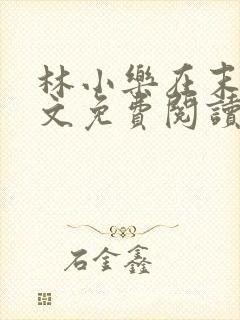 林小樂在末
文免費閱讀
石金鑫